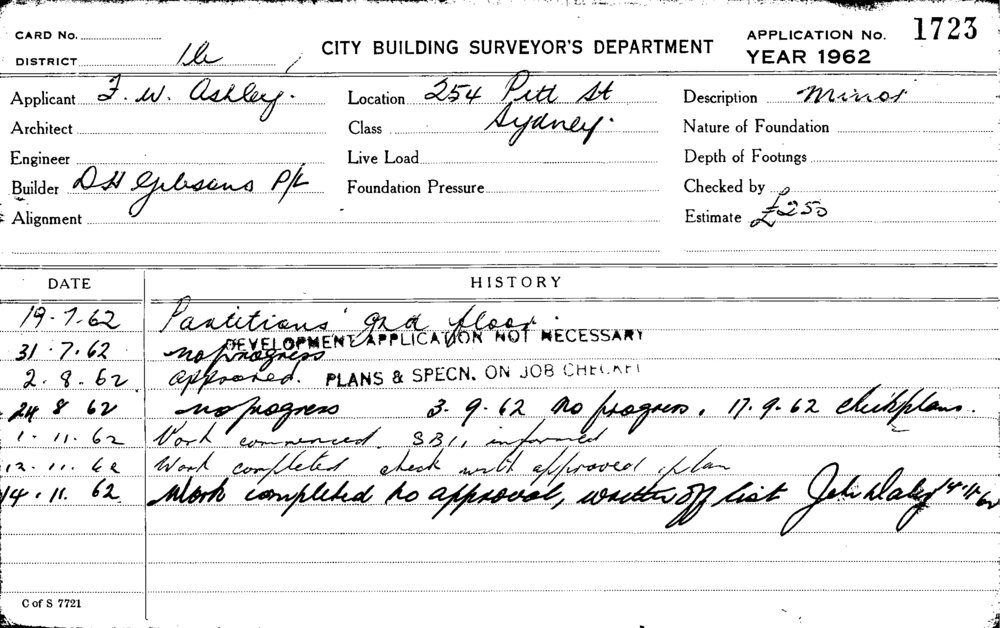 CARD No.
DISTRICT
CITY BUILDING SURVEYOR'S DEPARTMENT
APPLICATION No. 1723
YEAR 1962
Applicant F. W. Ashley.
Location 254 Pitt St
Sydney.
Description Minor
Architect
Class
Nature of Foundation
Engineer
Live Load
Depth of Footings
Builder D H Gibsons P/L
Foundation Pressure
Checked by
Alignment
Estimate £250
DATE HISTORY
19.7.62 Partitions grd floor.
DEVELOPMENT APPLICATION NOT NECESSARY
31.7.62 no progress
2.8.62 approved. PLANS & SPECN. ON JOB CHECKED
24 8 62 no progress 3.9.62 no progress. 17.9.62 check plans.
1.11.62 Work commenced. informed
12.11.62 Work completed check with approved plan
14.11.62 Work completed to approval, written off list John Daley 14.11.62
C of S 7721